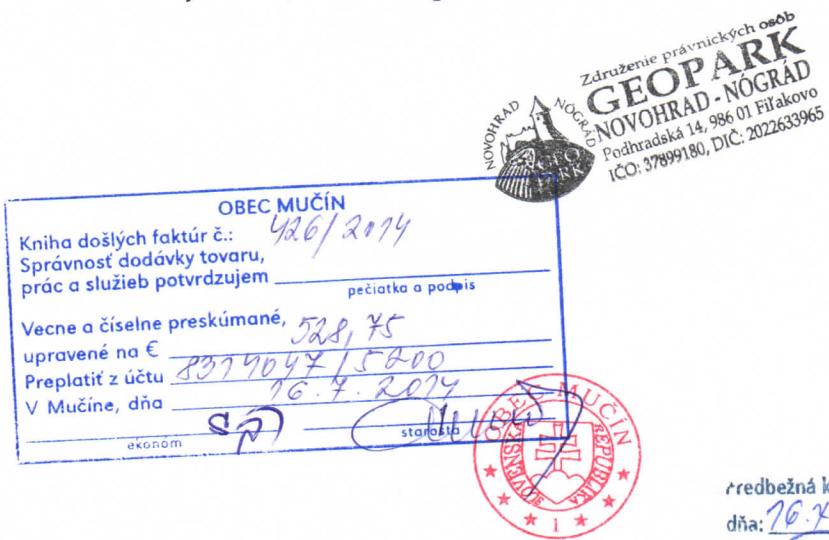 Združenie právnických osôb
GEOPARK
NOVOHRAD - NÓGRÁD
Podhradská 14, 986 01 Fiľakovo
IČO: 37899180, DIČ: 2022633965
NOVOHRAD NÓGRÁD
GEO
PARK
OBEC MUČÍN
Kniha došlých faktúr č.: 426/2014
Správnosť dodávky tovaru,
prác a služieb potvrdzujem
pečiatka a podpis
Vecne a číselne preskúmané,
upravené na € 528,75
Preplatiť z účtu 8314047/5200
V Mučíne, dňa 16.7.2014
ekonom starosta
OBEC MUČÍN
SLOVENSKÁ REPUBLIKA
1
redbežná
dňa: 16.